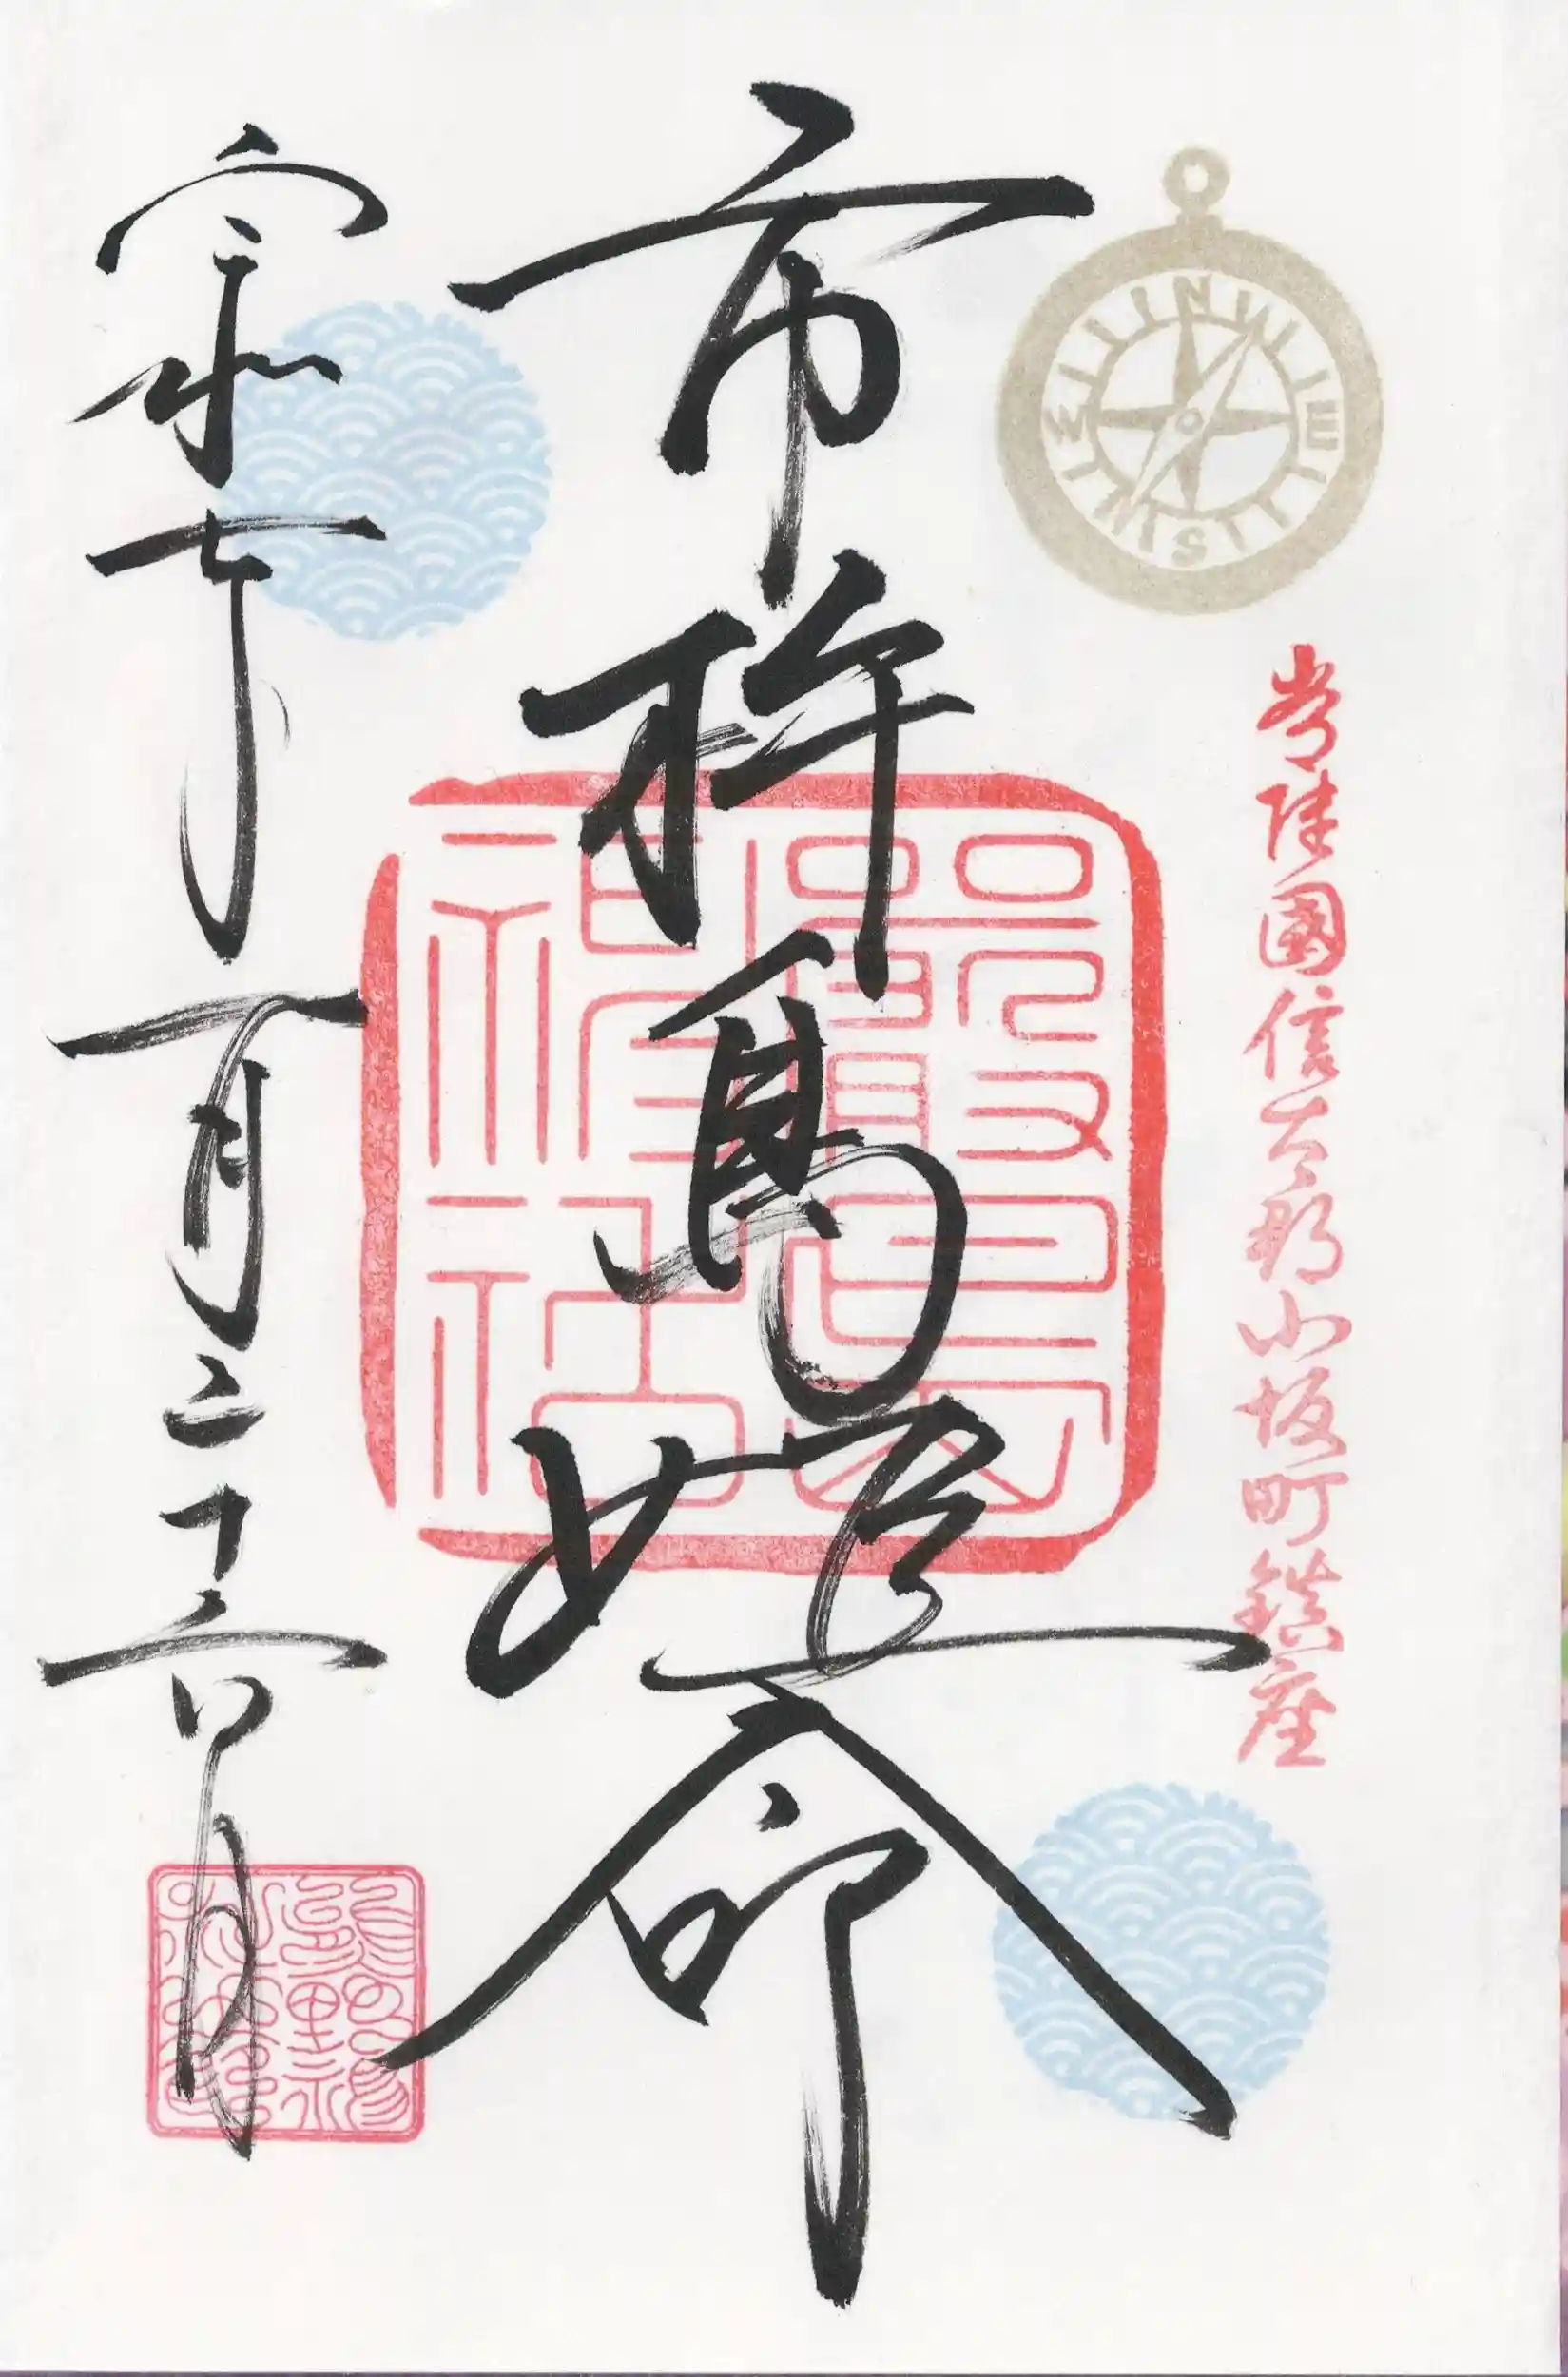 常陸國信太郡小坂町鎮座
市杵島姫命
令和七年一月二十六日
嚴島
神社
N
E
S
W